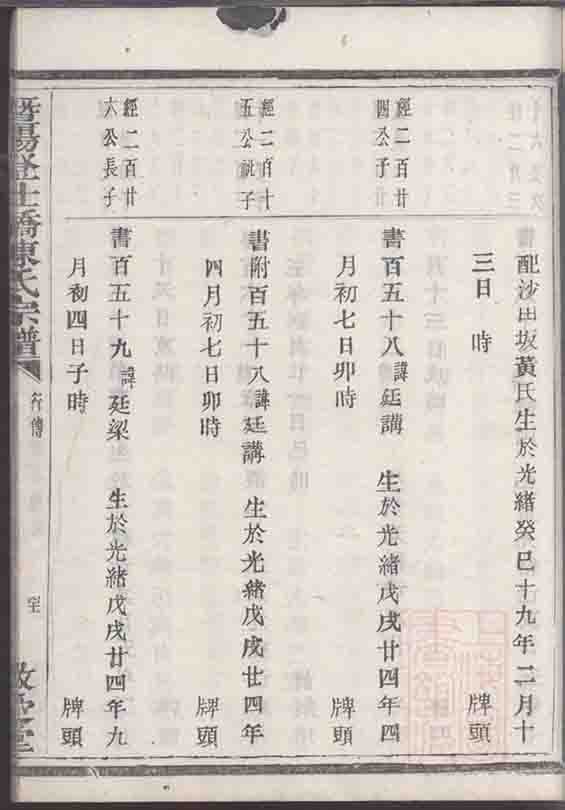 配沙田坂黃氏生於光緒癸巳十九年二月十
三日　時　牌頭
經二百廿
四公子
書百五十八諱廷講　生於光緒戊戌廿四年四
月初七日卯時　牌頭
經二百十
五公祉子
書附百五十八諱廷講　生於光緒戊戌廿四年
四月初七日卯時　牌頭
經二百廿
六公長子
書百五十九諱廷梁　生於光緒戊戌廿四年九
月初四日子時　牌頭
暨陽 橋陳氏宗譜
行傳